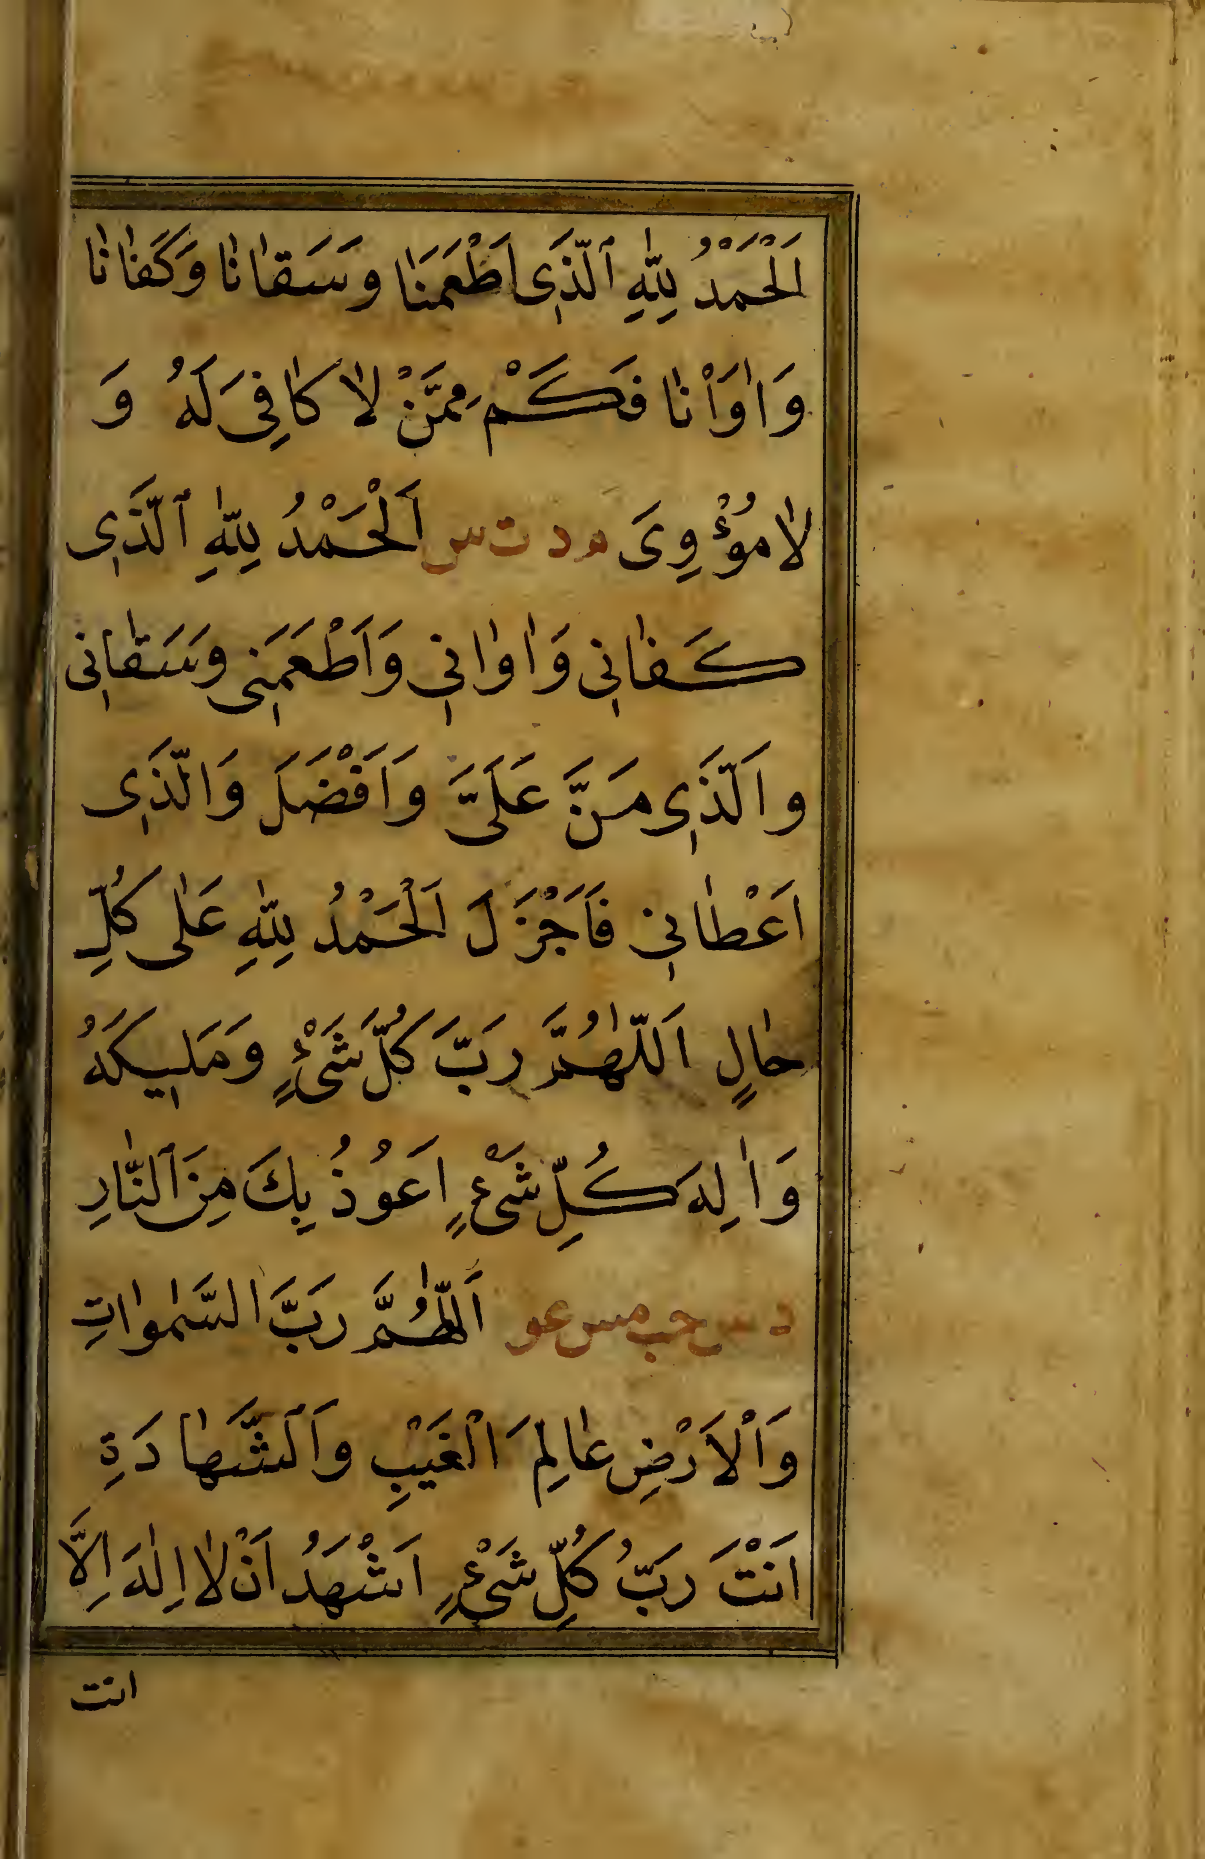 اَلْحَمْدُ لِلّٰهِ ٱلَّذَٖى اَطْعَمَنٰا وسَقٰانٰا وَكَفٰانٰا
وَاٰوَاْنٰا فَكَمْ مِمَّنْ لٰا كٰافِىَ لَهُ وَ
لٰا مُؤْوِىَ م د ت س اَلْحَمْدُ لِلّٰهِ ٱلَّذَٖى
كَفٰانٖى وَاٰوٰانٖى وَاَطْعَمَنٖى وسَقٰانٖى
والَّذَٖى مَنَّ عَلَىَّ وَاَفْضَلَ وَالَّذَٖى
اَعْطٰانٖى فَاَجْزَلَ اَلْحَمْدُ لِلّٰهِ عَلٰى كُلِّ
حٰالٍ اَللّٰهُمَّ رَبَّ كُلِّ شَىْءٍ وَمَلٖيكَهُ
وَاٰلِهَ كُلِّ شَىْءٍ اَعُوْذُ بِكَ مِنَ ٱلنّٰارِ
د س حب مس عو اَللّٰهُمَّ رَبَّ السَّمٰوٰاتِ
وَاْلاَرْضِ عٰالِمَ الْغَيْبِ وَالشَّهٰادَةِ
اَنْتَ رَبُّ كُلِّ شَىْءٍ اَشْهَدُ اَنْ لٰا اِلٰهَ اِلَّا
انت